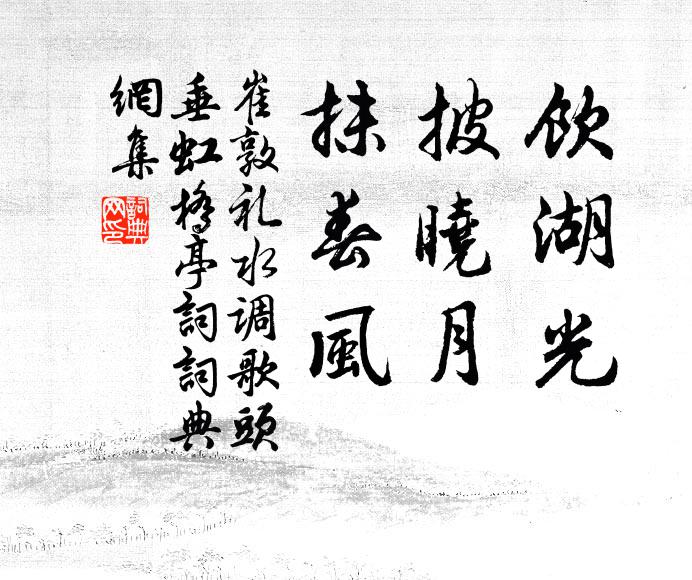 饮湖光
披曉月
抹春風
崔敦礼水调歌頭
垂虹橋亭詞詞典
網集
詞典
网印